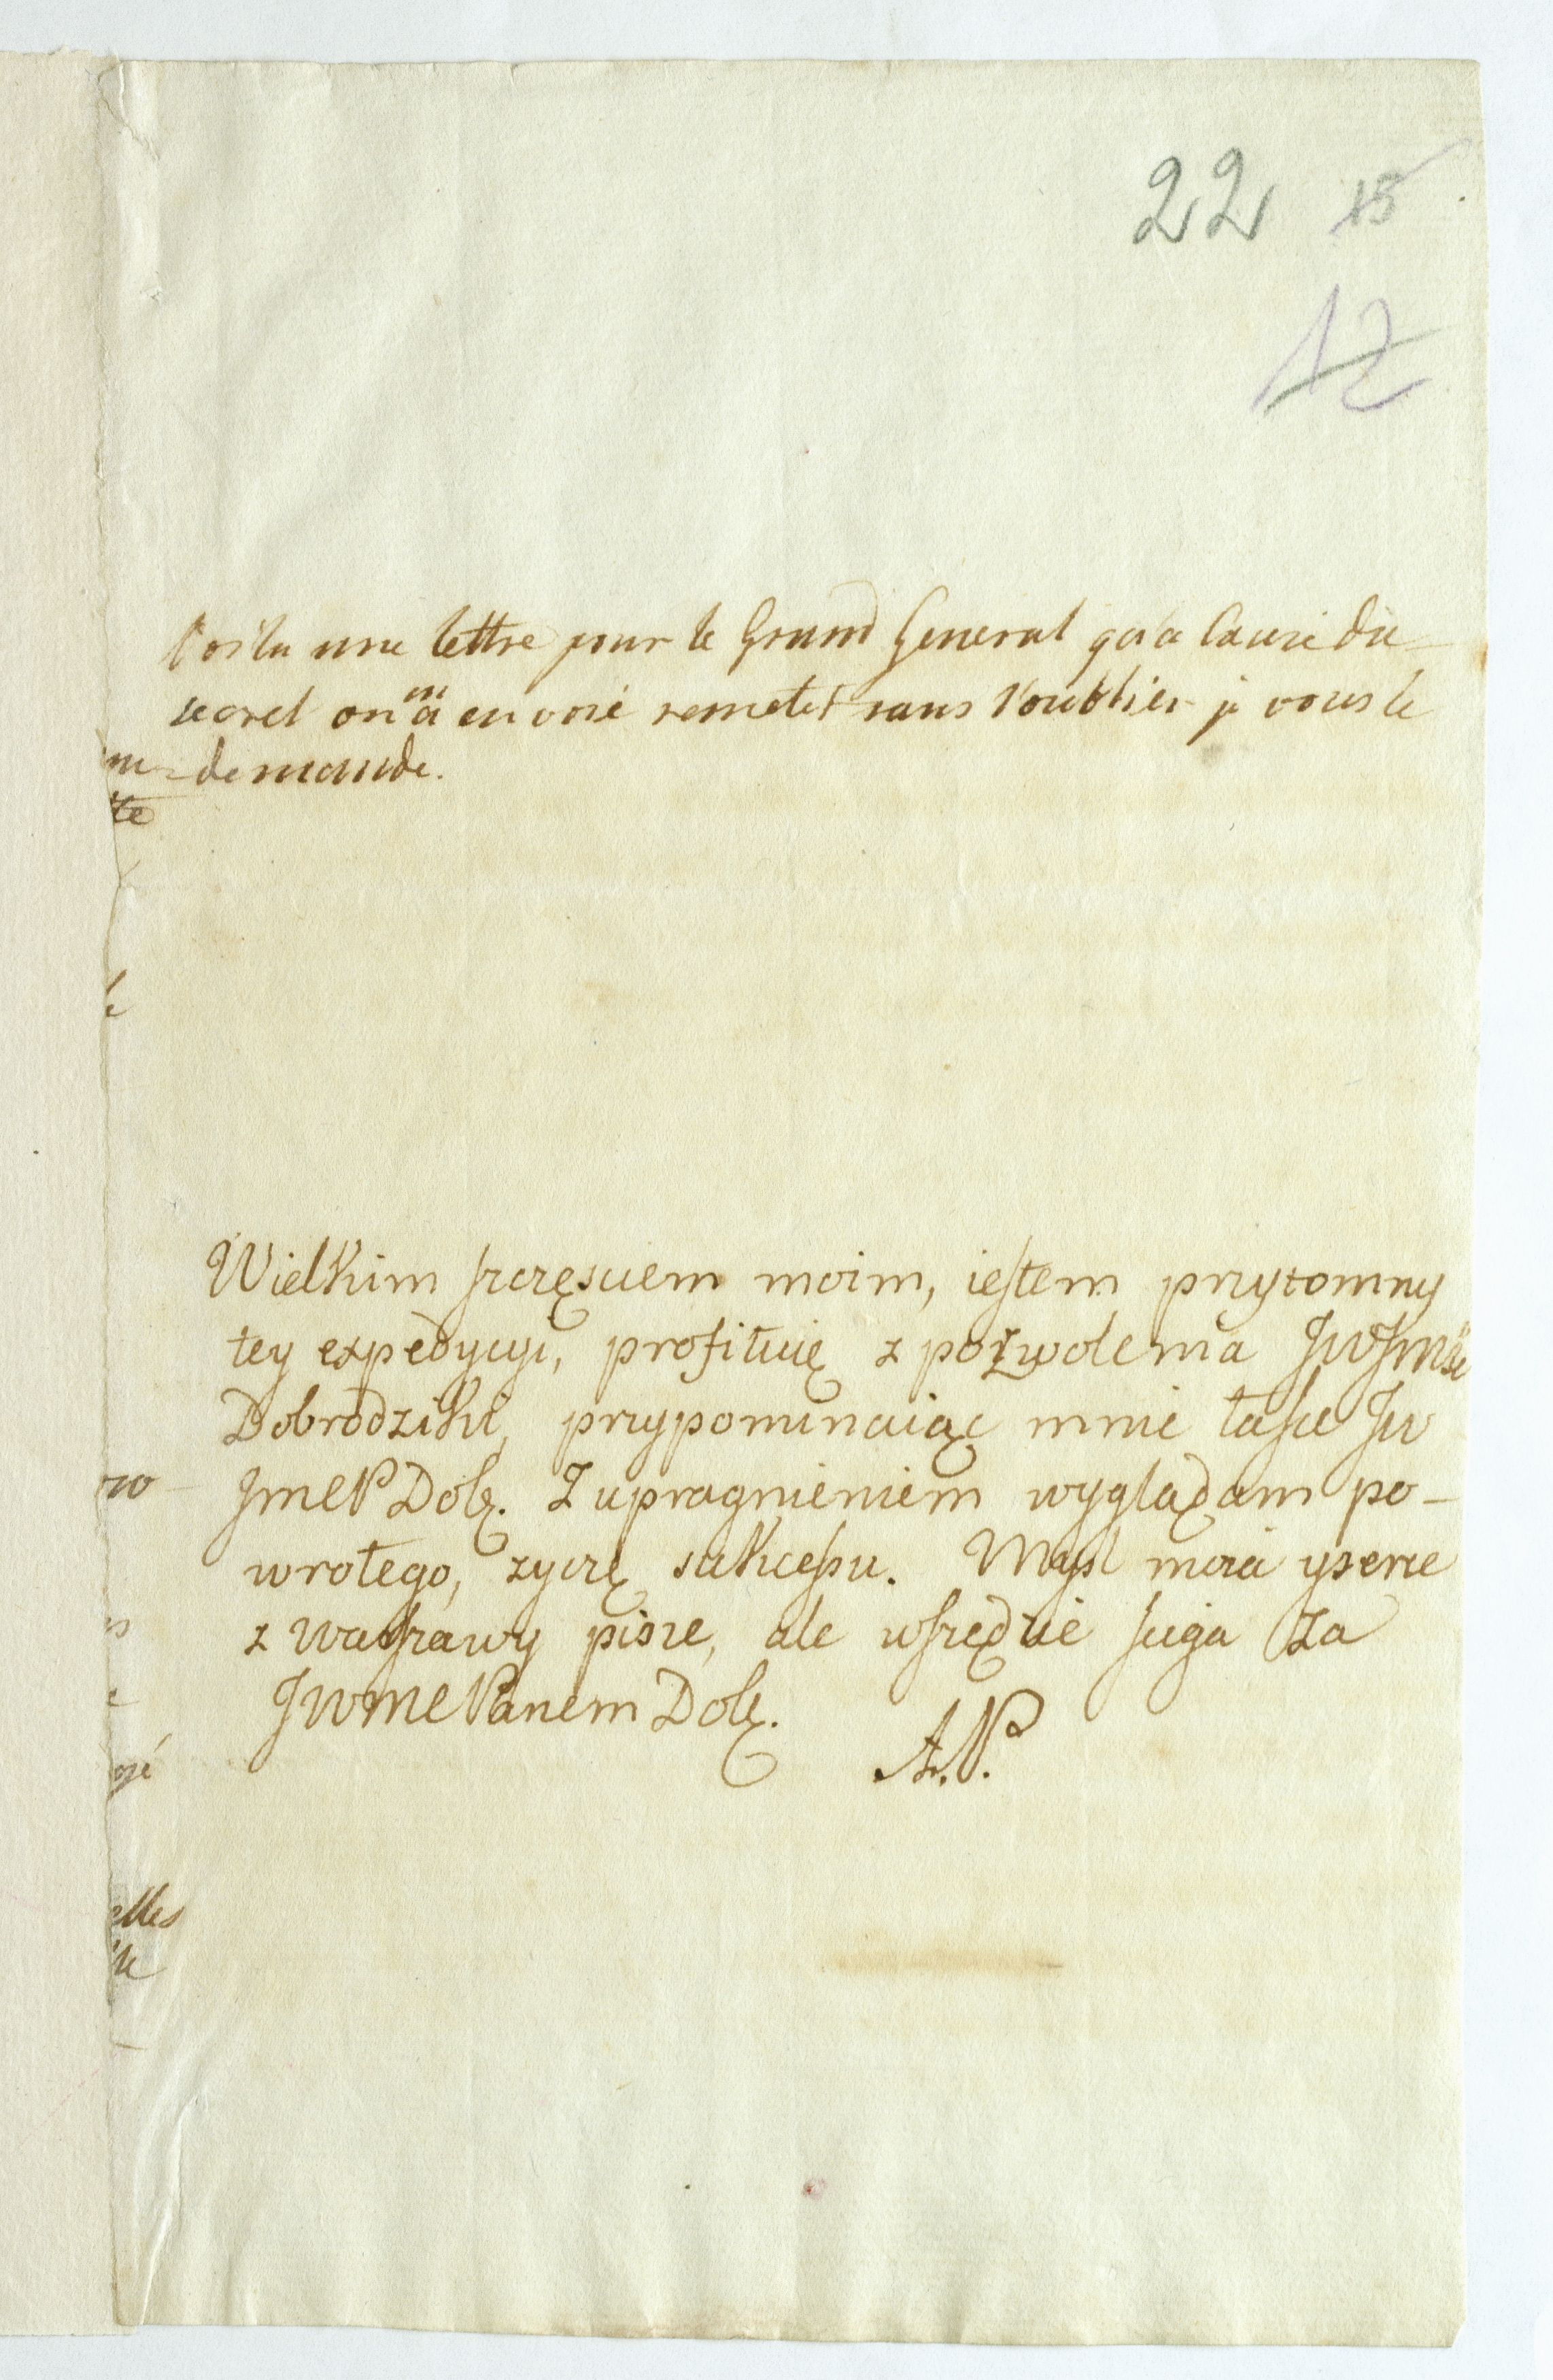 22 15
12
Voila une lettre pour le Grand General qu'a Cause du
secret on m'a envoié remetét sans l'oublier je vous le
demande.
Wielkim szczęsciem moim, iestem przytomny
tey expedycyi, profituię z pozwolenia JwJmści
Dobrodziki, przypominaiąc mnie łasce Jw
JmCP Dob. Z upragnieniem wyglądam po-
wrotego, zyczę sukcessu. Mysl moia y serce
z Warszawy pisze, ale wszędzie sciga za
JWMCPanem Dob.
A. P.
elles